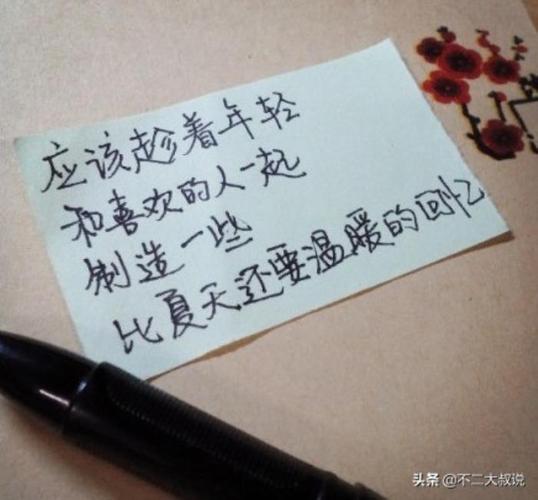 应该趁着年轻
和喜欢的人一起
制造一些
比夏天还要温暖的回忆
头条 @不二大叔说